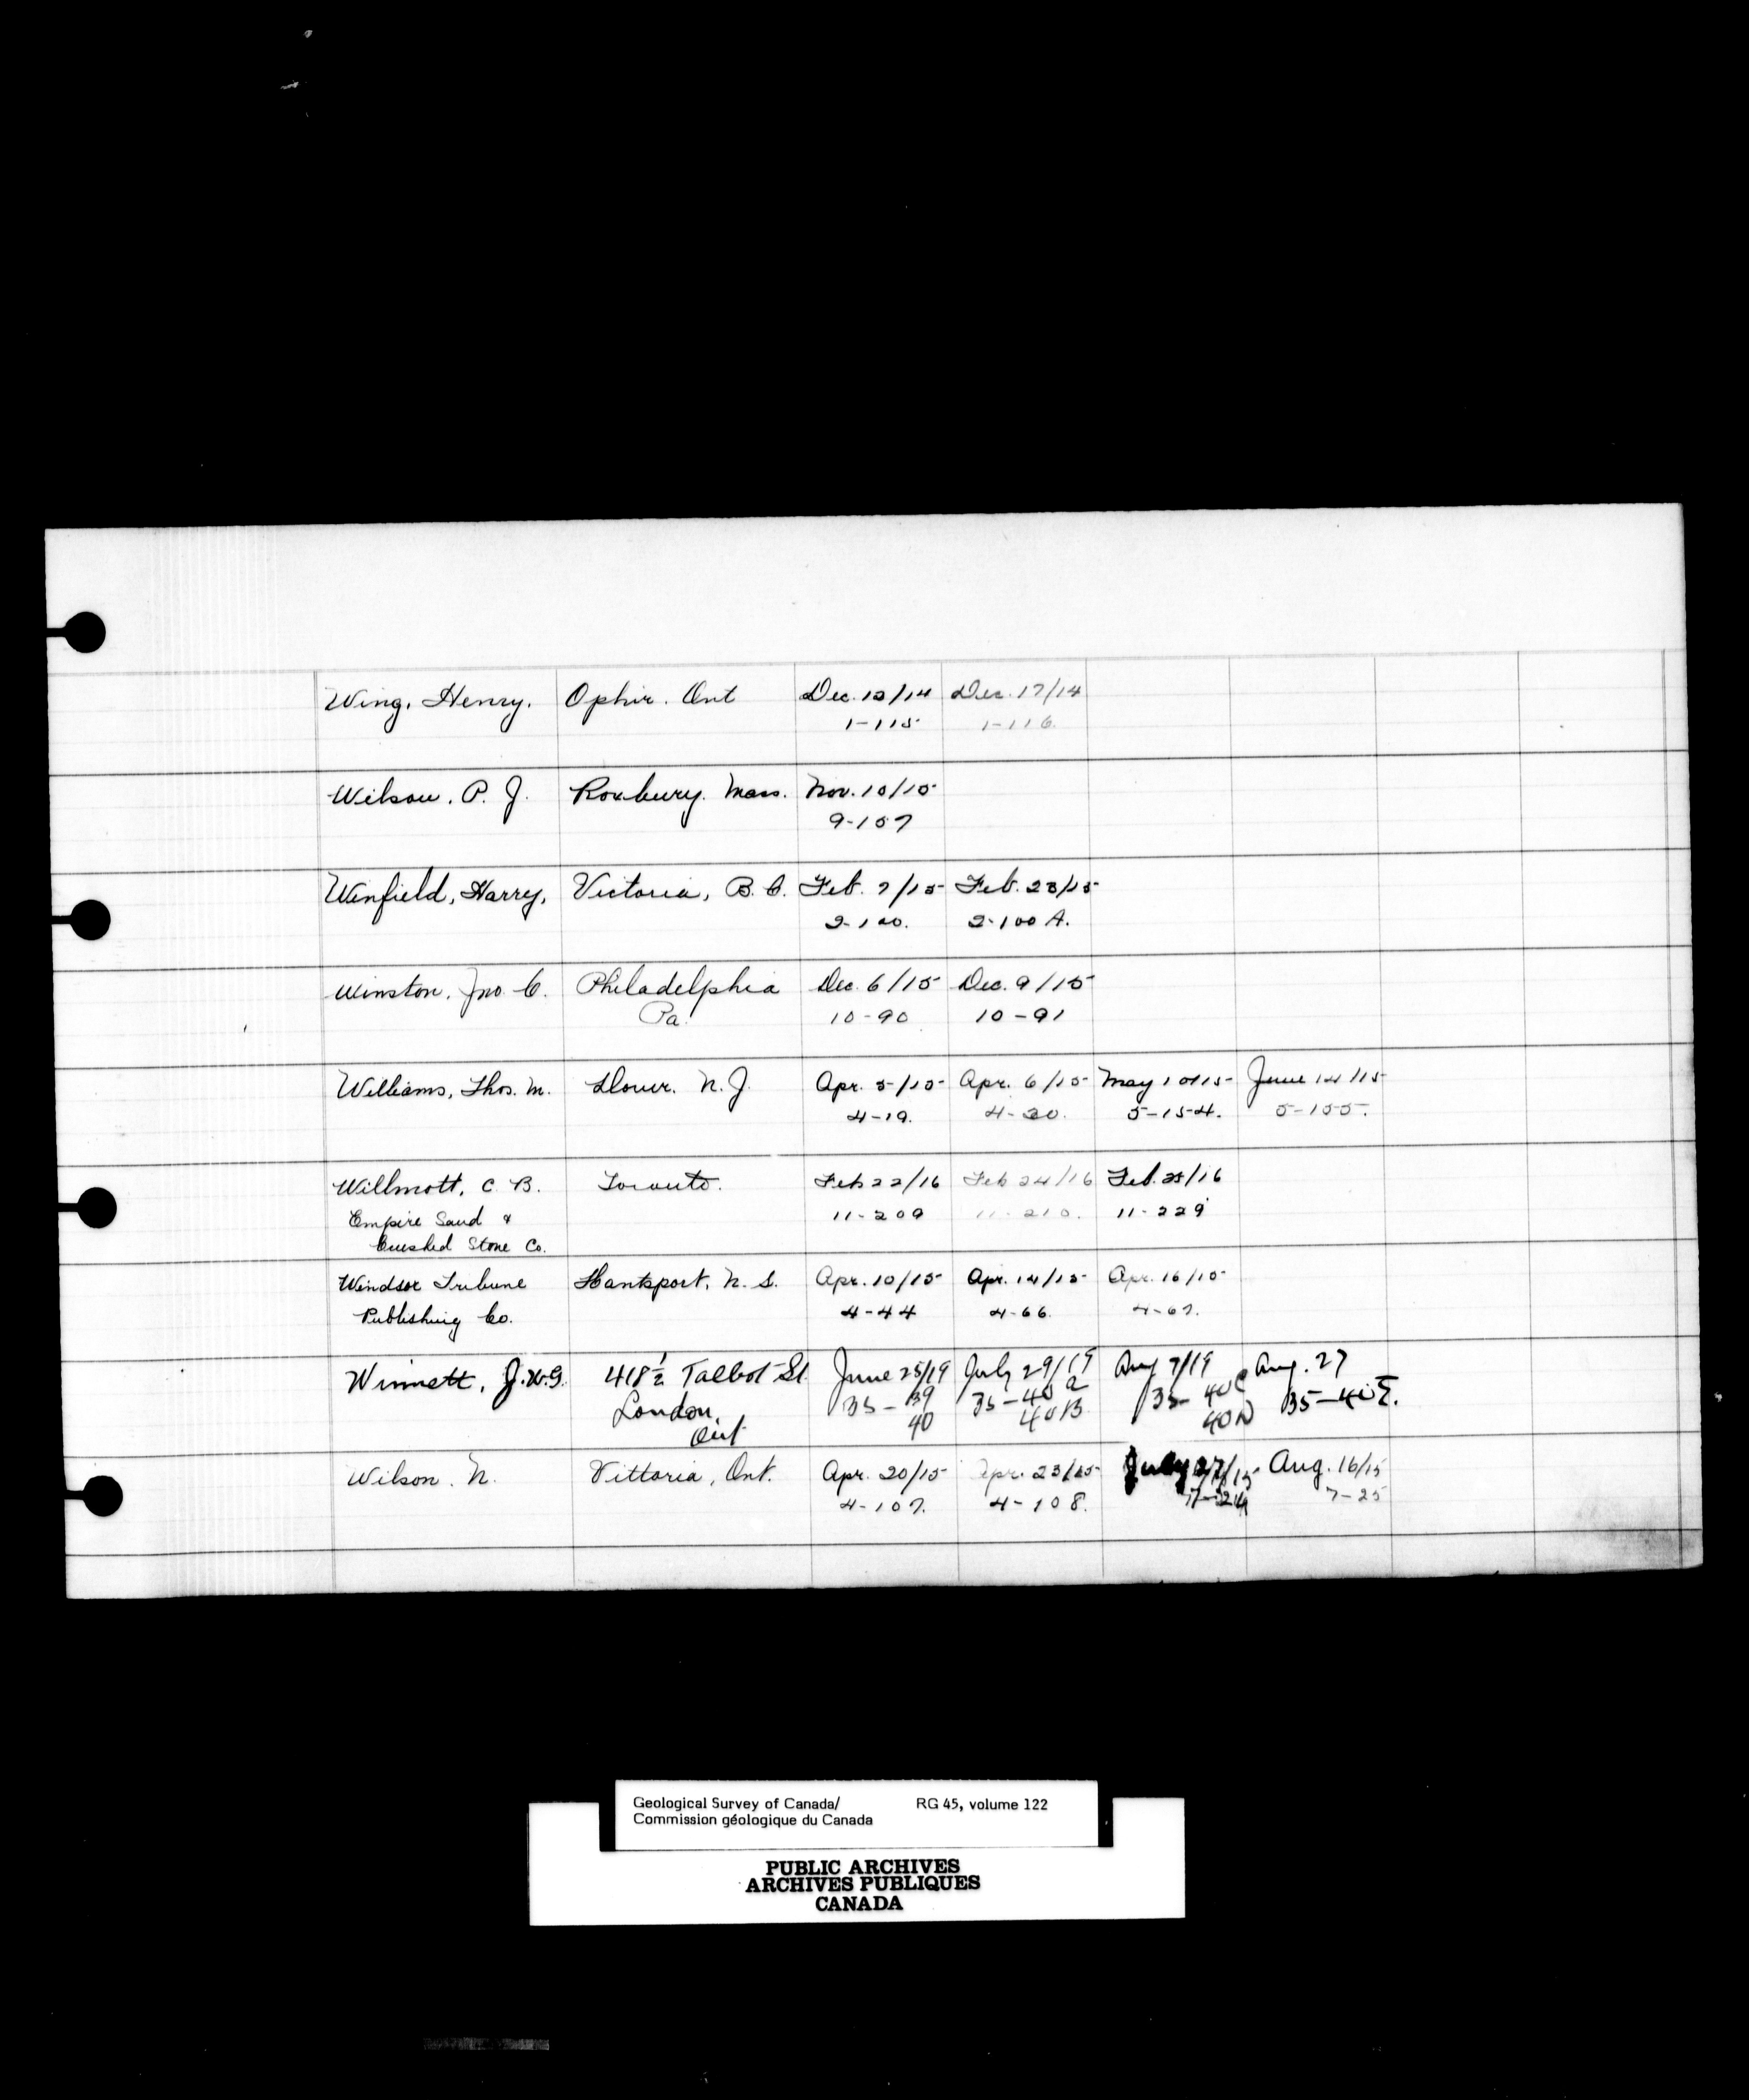 Wing, Henry. Ophir. Ont Dec. 12/14 Dec. 17/14
1-115 1-116
Wilson, P. J. Roxbury. Mass. Nov. 10/15
9-157
Winfield, Harry, Victoria, B.C. Feb. 7/15 Feb. 23/15
2-100. 2-100 A.
Winston, Jno. C. Philadelphia Dec. 6/15 Dec. 9/15
Pa. 10-90 10-91
Williams, Thos. M. Dover. N.J. Apr. 5/15 Apr. 6/15 May 10/15 June 14/15
4-19. 4-20. 5-154. 5-155.
Willmott, C. B. Toronto. Feb 22/16 Feb 24/16 Feb. 25/16
Empire Sand & 11-209 11-210. 11-229
Crushed Stone Co.
Windsor Tribune Hantsport, N.S. Apr. 10/15 Apr. 14/15 Apr. 16/15
Publishing Co. 4-44 4-66. 4-67.
Winnett, J.W.G. 418½ Talbot St. June 25/19 July 29/19 Aug 7/19 Aug. 27
London, 35-39 35-40 a 35-40C 35-40E.
Ont 40 40B 40D
Wilson. N. Vittoria, Ont. Apr. 20/15 Apr. 23/15 July 27/15 Aug. 16/15
4-107. 4-108. 7-24 7-25
Geological Survey of Canada/ RG 45, volume 122
Commission géologique du Canada
PUBLIC ARCHIVES
ARCHIVES PUBLIQUES
CANADA